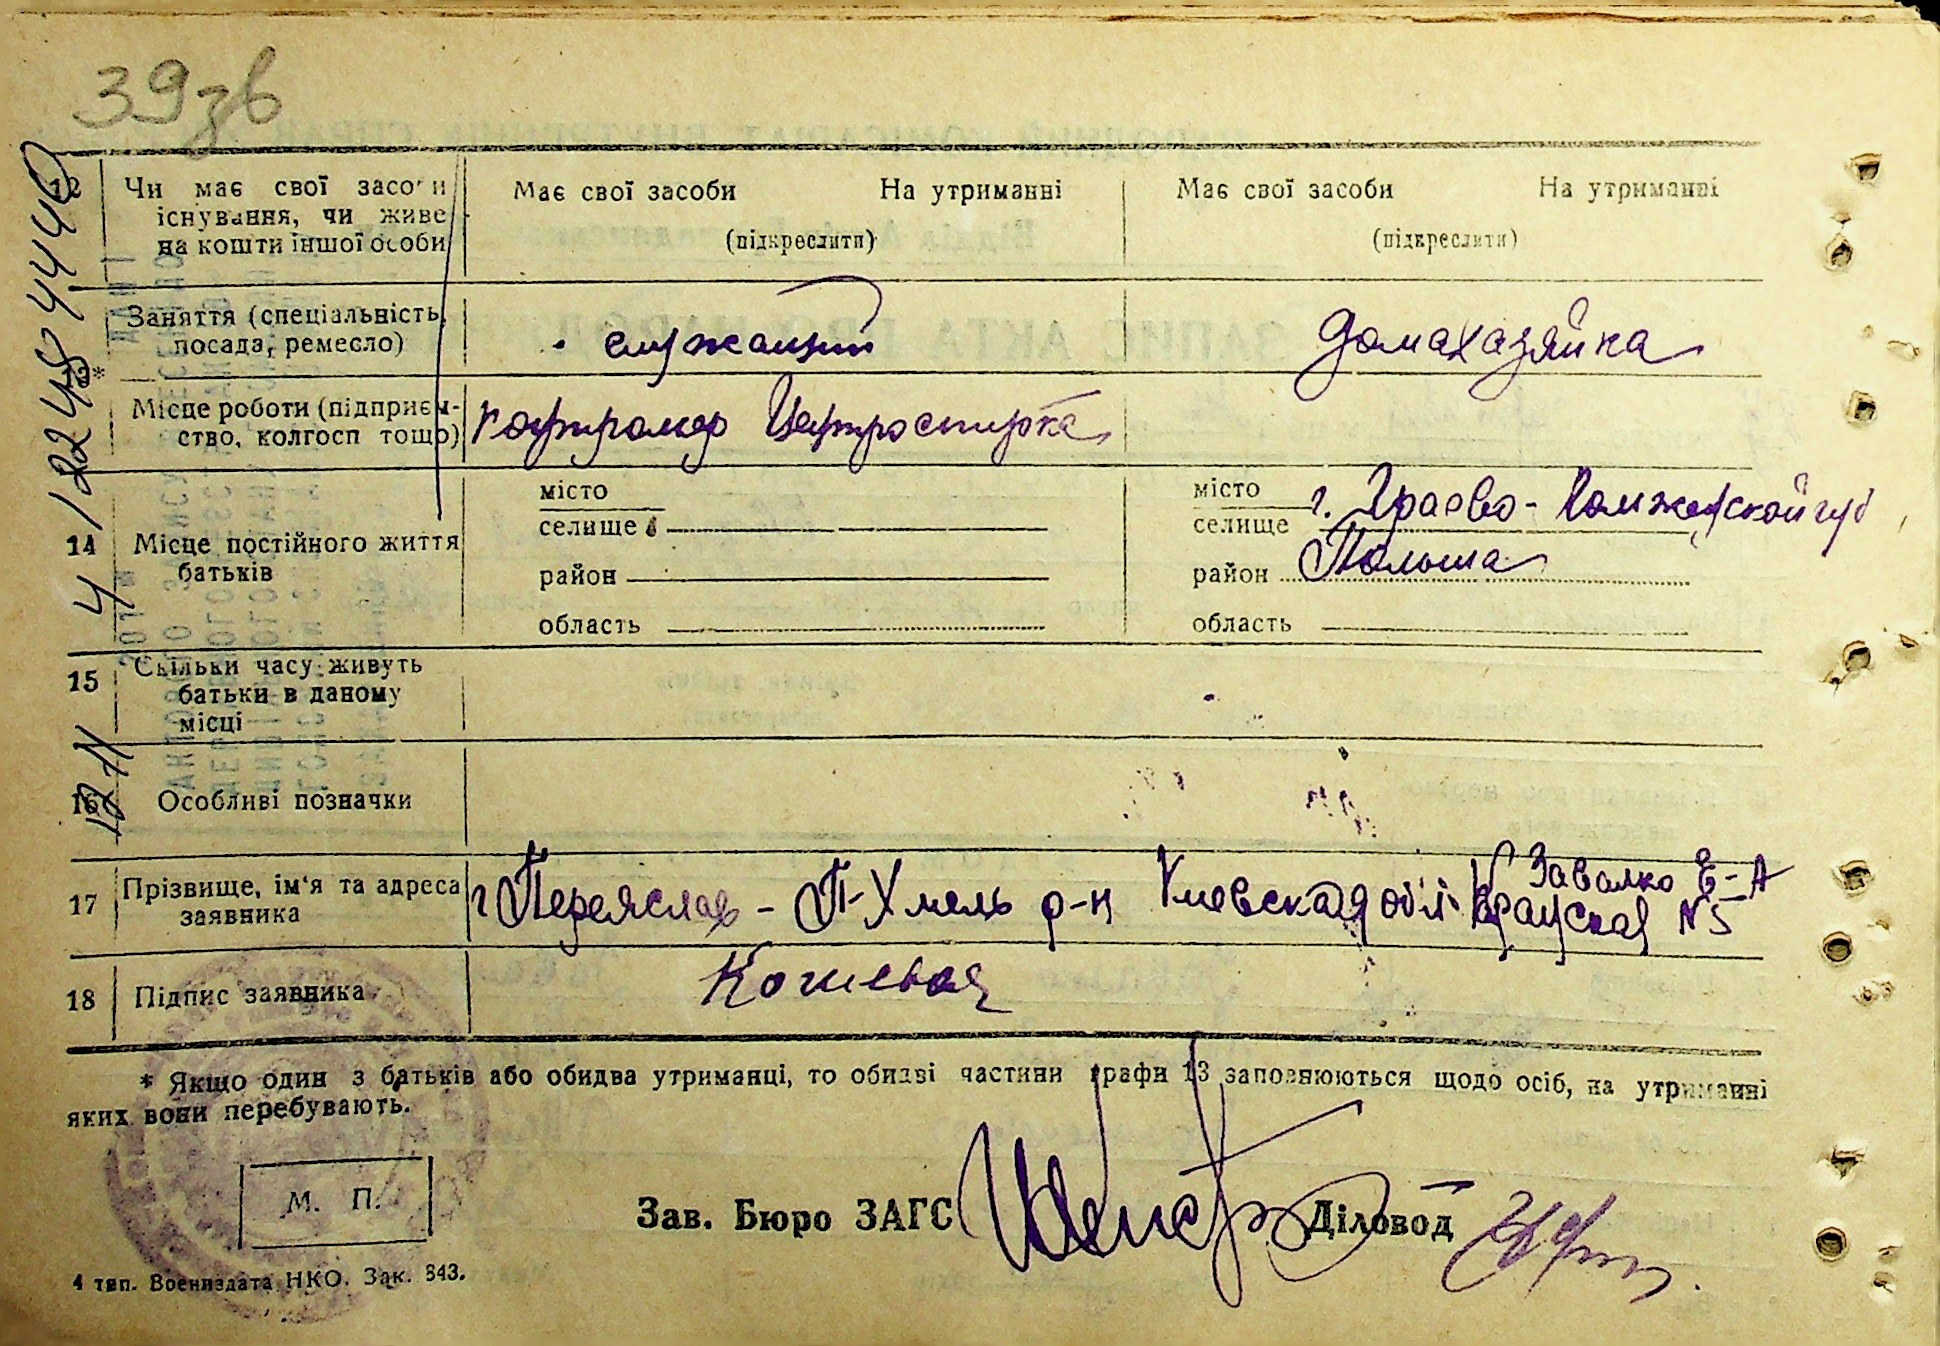 39зв
12 Чи має свої засоби Має свої засоби На утриманні Має свої засоби На утриманні
існування, чи живе
на кошти іншої особи (підкреслити) (підкреслити)
Заняття (спеціальність,
посада, ремесло) служащий домахазяйка
*
Місце роботи (підприєм-
ство, колгосп тощо)
14 Місце постійного життя
батьків
місто
селище
район
область
місто г. Граево - Ломжеской губ
селище
район Польша
область
15 Скільки часу живуть
батьки в даному
місці
16 Особливі позначки
17 Прізвище, ім'я та адреса
заявника
Завалко Е-А
г Переяслав - П-Хмель р-н Киевская обл. №5
18 Підпис заявника Кошевая
* Якщо один з батьків або обидва утриманці, то обидві частини графи 13 заповнюються щодо осіб, на утриманні
яких вони перебувають.
М. П.
Зав. Бюро ЗАГС Діловод
4 тип. Воениздата НКО. Зак. 343.